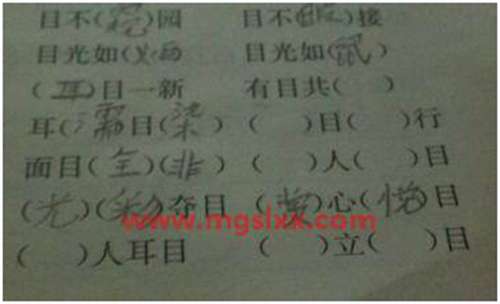 目不(窥)园 目不(暇)接
目光如(炬) 目光如(鼠)
(耳)目一新 有目共( )
耳(濡)目(染) ( )目( )行
面目(全)(非) ( )人( )目
(光)(彩)夺目 (赏)心(悦)目
www.mgslxx.com
( )人耳目 ( )立( )目